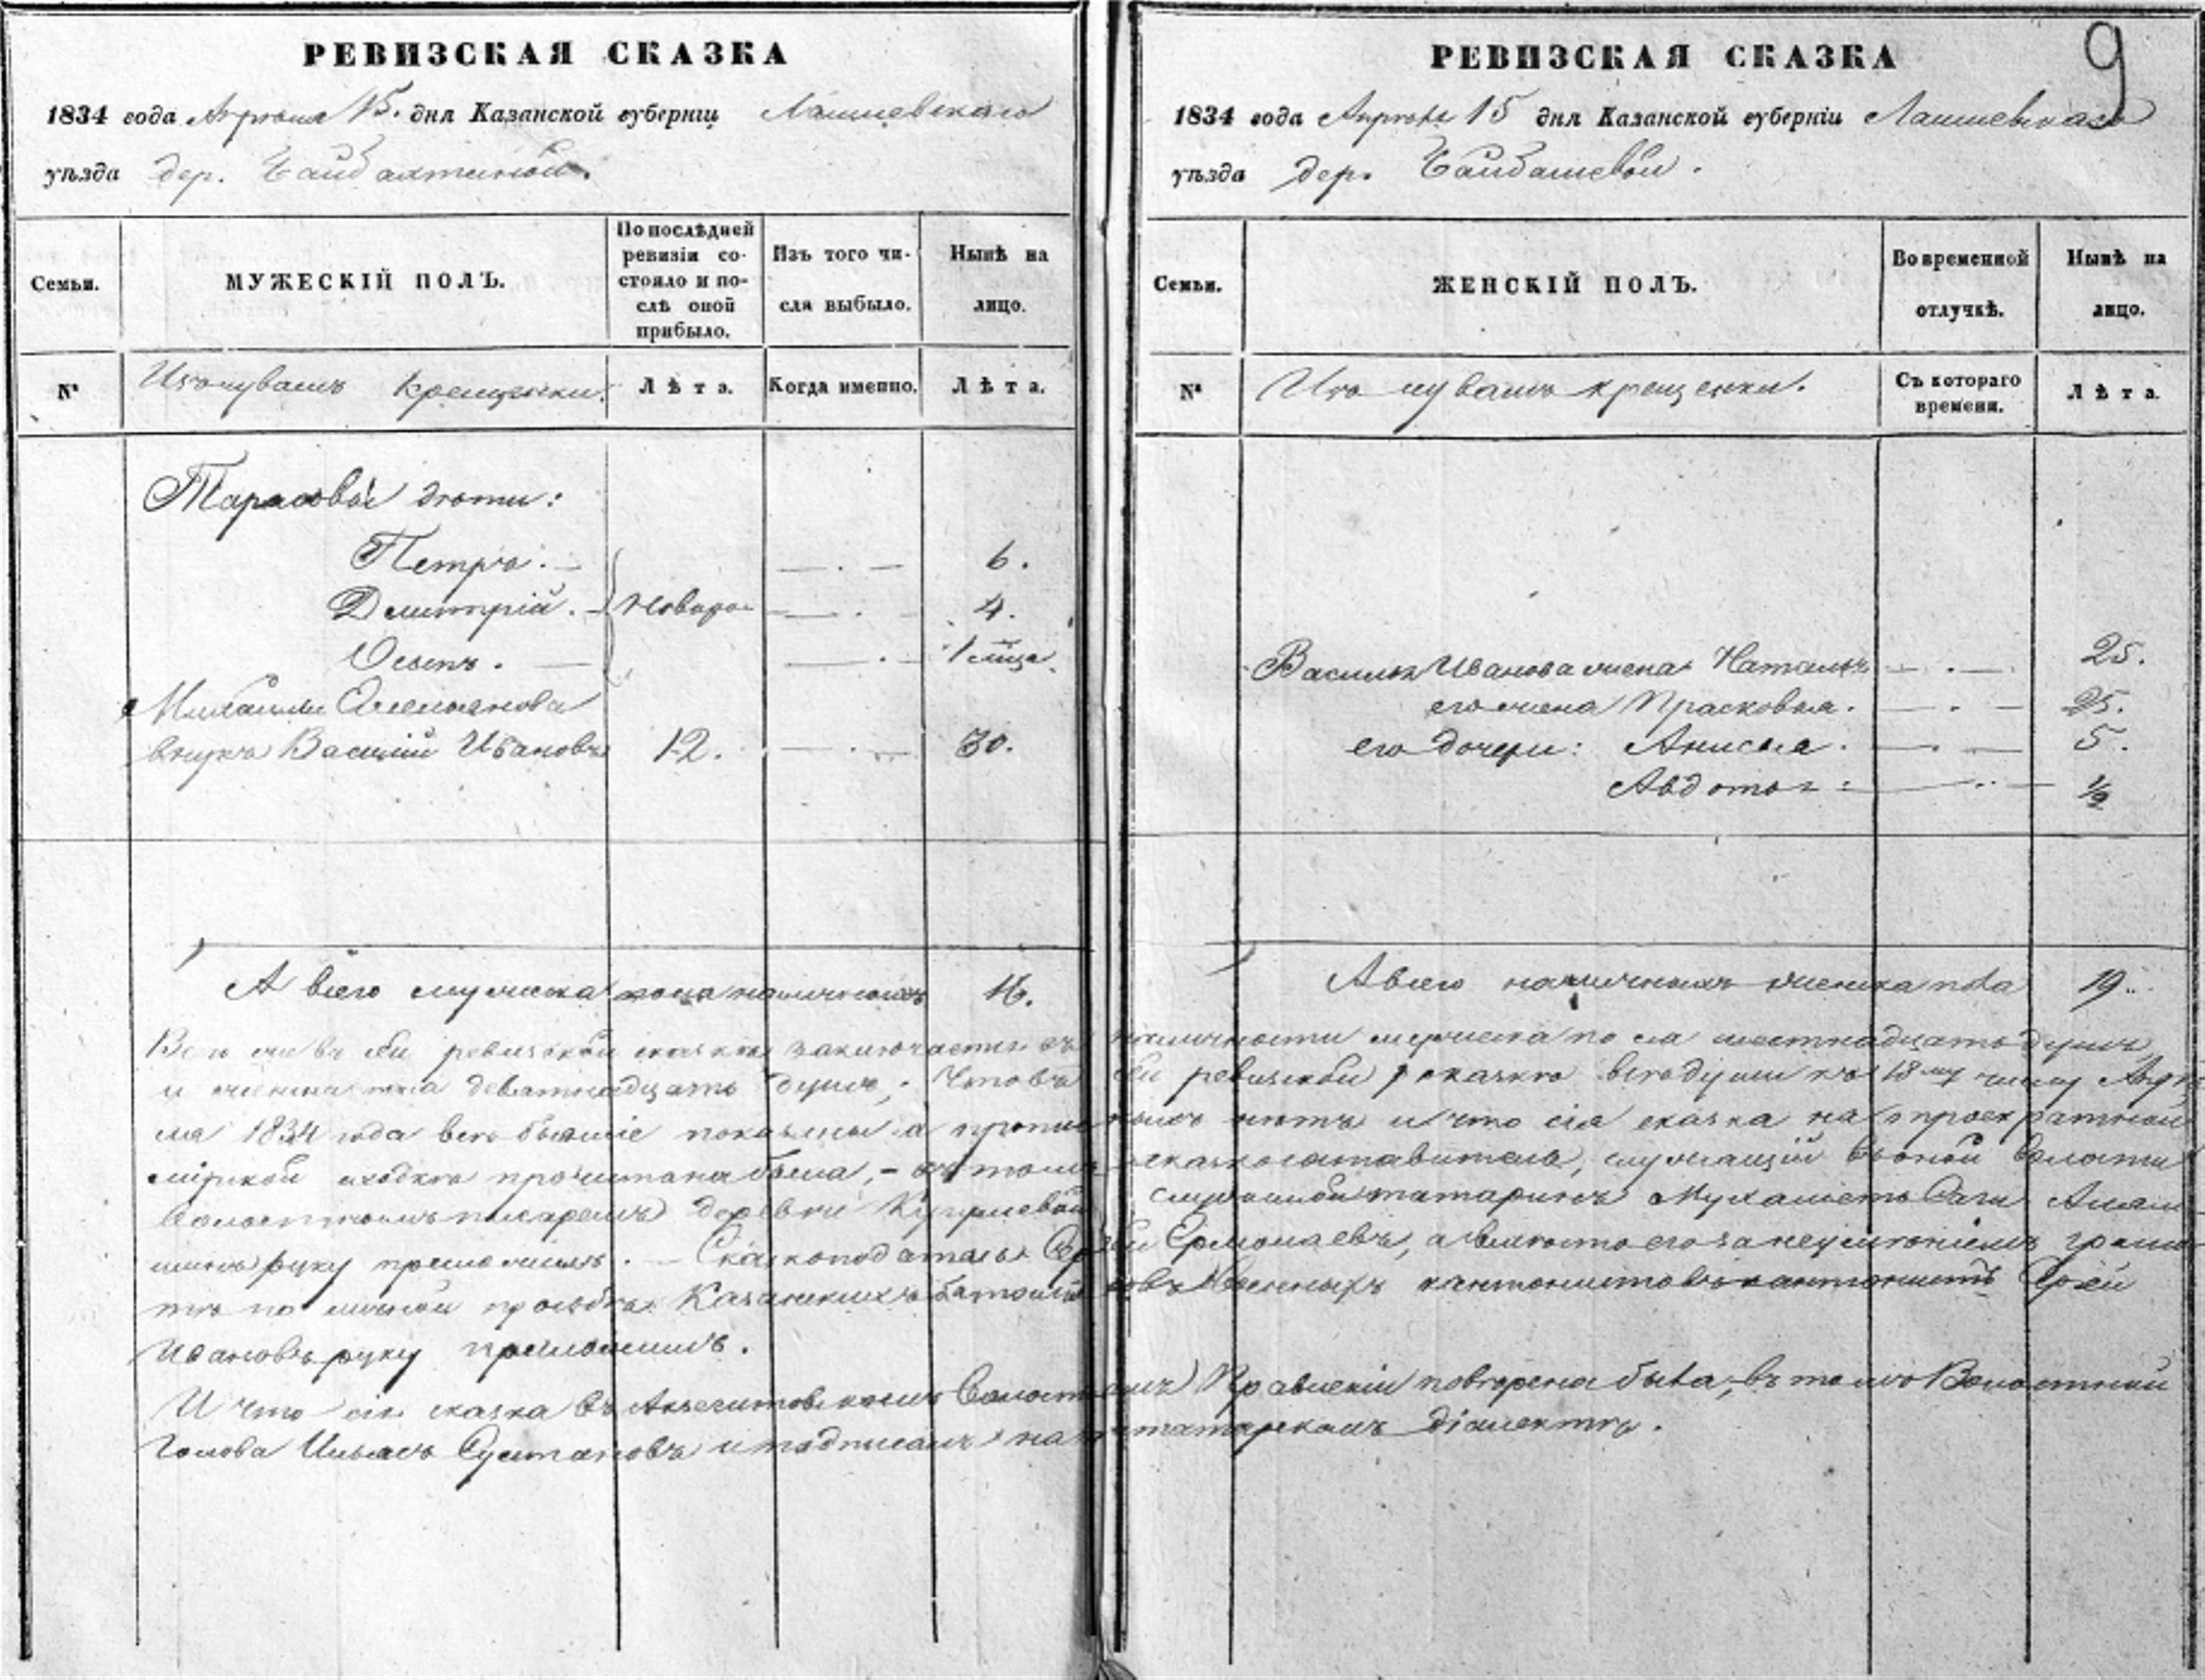 РЕВИЗСКАЯ СКАЗКА
1834 года Апреля 15. дня Казанской губерніи Лаишевскаго
уѣзда дер.
Семьи.
МУЖЕСКІЙ ПОЛЪ.
По послѣдней ревизіи состояло и послѣ оной прибыло.
Изъ того числа выбыло.
Нынѣ на лицо.
№
Изъ чувашъ крещенки.
Лѣта.
Когда именно.
Лѣта.
Тарасовы дѣти:
Петръ. — . — 6.
Дмитрій. — Новоро — . — 4.
Осипъ. — . — 1 мѣсца.
Михаилы
внукъ Василій Ивановъ 12. — . — 30.
А всего мужеска пола наличныхъ 16.
РЕВИЗСКАЯ СКАЗКА
9
1834 года Апреля 15 дня Казанской губерніи Лаишевскаго
уѣзда дер.
Семьи.
ЖЕНСКІЙ ПОЛЪ.
Во временной отлучкѣ.
Нынѣ на лицо.
№
Изъ чувашъ крещенки.
Съ котораго времени.
Лѣта.
Василья Иванова жена Наталья — . — 25.
его жена Прасковья. — . — 25.
его дочери: Анисья. — . — 5.
Авдотья: — . — ½
А всего наличныхъ женска пола 19.
Всего же въ сей ревизской сказкѣ заключается въ наличности мужеска пола шестнадцать душъ,
и женска пола девятнадцать душъ, Что въ сей ревизской сказкѣ всѣ души къ 18му числу Апрѣ
ля 1834 года всѣ бывшіе показаны а пропис ныхъ нѣтъ и что сія сказка на
мірской сходкѣ прочитана была, – въ томъ сказкосоставитель, служащій въ оной Волости
Волостнымъ писаремъ деревни служилой татаринъ Мухаметъ
руку приложилъ. — Сказкоподатель Сергѣй Ермолаевъ, а вмѣсто его за неумѣніемъ грамо
тѣ по личной прозьбѣ Казанскихъ баталіоновъ Военныхъ кантонистовъ кантонистъ Сергѣй
Ивановъ руку приложилъ.
И что сія сказка въ Волостномъ Правленіи повѣрена была, въ томъ Волостной
Голова Ильясъ и подписалъ на татарскомъ діалектѣ.